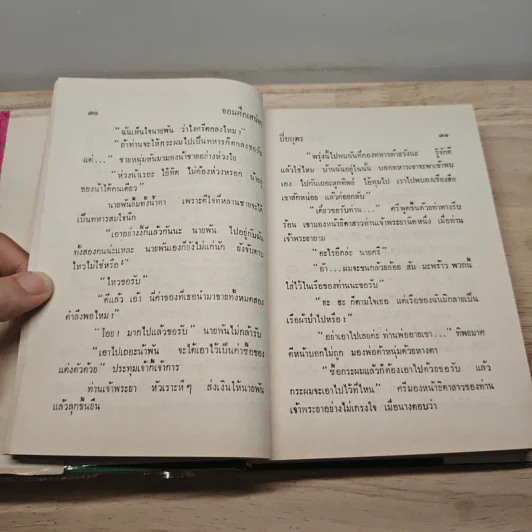 ๓๐
จอมศึกเสน่หา
“ฉันเห็นใจนายพัน ว่าไงกรีดกลงไหม!
“ถ้าท่านจะให้กระผมไปเป็นทหารก็ตกลงขอรับ
แต่...” ชายหนุ่มหันมามองน้าชายอย่างห่วงใย
“ห่วงน้าเรอะ ไอ้ทิด ไม่ต้องห่วงหรอก น้าอยู่
ของน้าได้คนเดียว”
นายพันยิ้มทั้งน้ำตา เพราะดีใจที่หลานชายจะได้
เป็นทหารสมใจนึก
“เอาอย่างก็แล้วกันนายพัน ไปอยู่กับฉัน
ทั้งสองคนน่ะแหละ นายพันเองก็ยังไม่แก่นัก ยังจับดาบ
ไหวไม่ใช่หรือ!”
“ไหวขอรับ”
“ดีแล้ว เอ้า นี่ค่าของที่เธอนำมาขายทั้งหมดสอง
ตำลึงพอไหม!”
“โอย! มากไปแล้วขอรับ” นายพันไม่กล้ารับ
“เอาไปเถอะน้าพัน จะได้เอาไว้เป็นค่าซื้อของ
แต่งตัวด้วย” ประทุมเจ้ากี้เจ้าการ
ท่านเจ้าพระยา หัวเราะหึๆ ส่งเงินให้นายพัน
แล้วลุกขึ้นยืน
ปิยบุตร
๓๑
“พรุ่งนี้ไปพบฉันที่กองทหารค้ายวังนะ รู้จักดี
แล้วใช่ไหม บ้านฉันอยู่ในนั้น บอกทหารเขาจะพาเข้าพบ
เอง ไปกันเถอะลูกทิพย์ ไอ้ทุมไป เราไปพบองเชียงสือ
เขาสักหน่อย แล้วค่อยกลับ”
“เดี๋ยวขอรับท่าน...” ศรีพูดขึ้นด้วยท่าทางรีบ
ร้อน เขามองหน้าธิดาสาวท่านเจ้าพระยานิดหนึ่ง เมื่อท่าน
เจ้าพระยาถาม
“อะไรอีกล่ะ นายศรี”
“อ้า...ผมจะขนกล้วยอ้อย ส้ม มะพร้าว พวกนี้
ใส่ไว้ในเรือของท่านนะขอรับ”
“ฮะ ฮะ ก็ตามใจเธอ แต่เรือของฉันมิกลายเป็น
เรือผ้าป่าไปหรือ!”
“อย่าเอาไปเลยค่ะ ท่านพ่ออายเขา...” ทิพยมาศ
ตีหน้าบอกไม่ถูก มองพ่อค้าหนุ่มด้วยหางตา
“ซื้อกระผมแล้วก็ต้องเอาไปด้วยขอรับ แล้ว
กระผมจะเอาไปไว้ที่ไหน” ศรีมองหน้าธิดาสาวของท่าน
เจ้าพระยาอย่างไม่เกรงใจ เมื่อนางตอบว่า